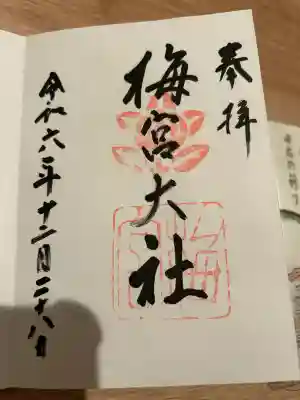 奉拝
梅宮大社
令和六年十二月二十八日